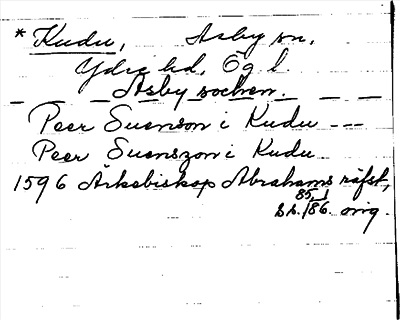 * Kudu, Asby sn,
Ydre hd, Ög l.
Asby sochen.
Peer Suenson i Kudu ---
Peer Suenszon i Kudu
1596 Ärkebiskop Abrahams räfst,
85,1
s. 186. orig.